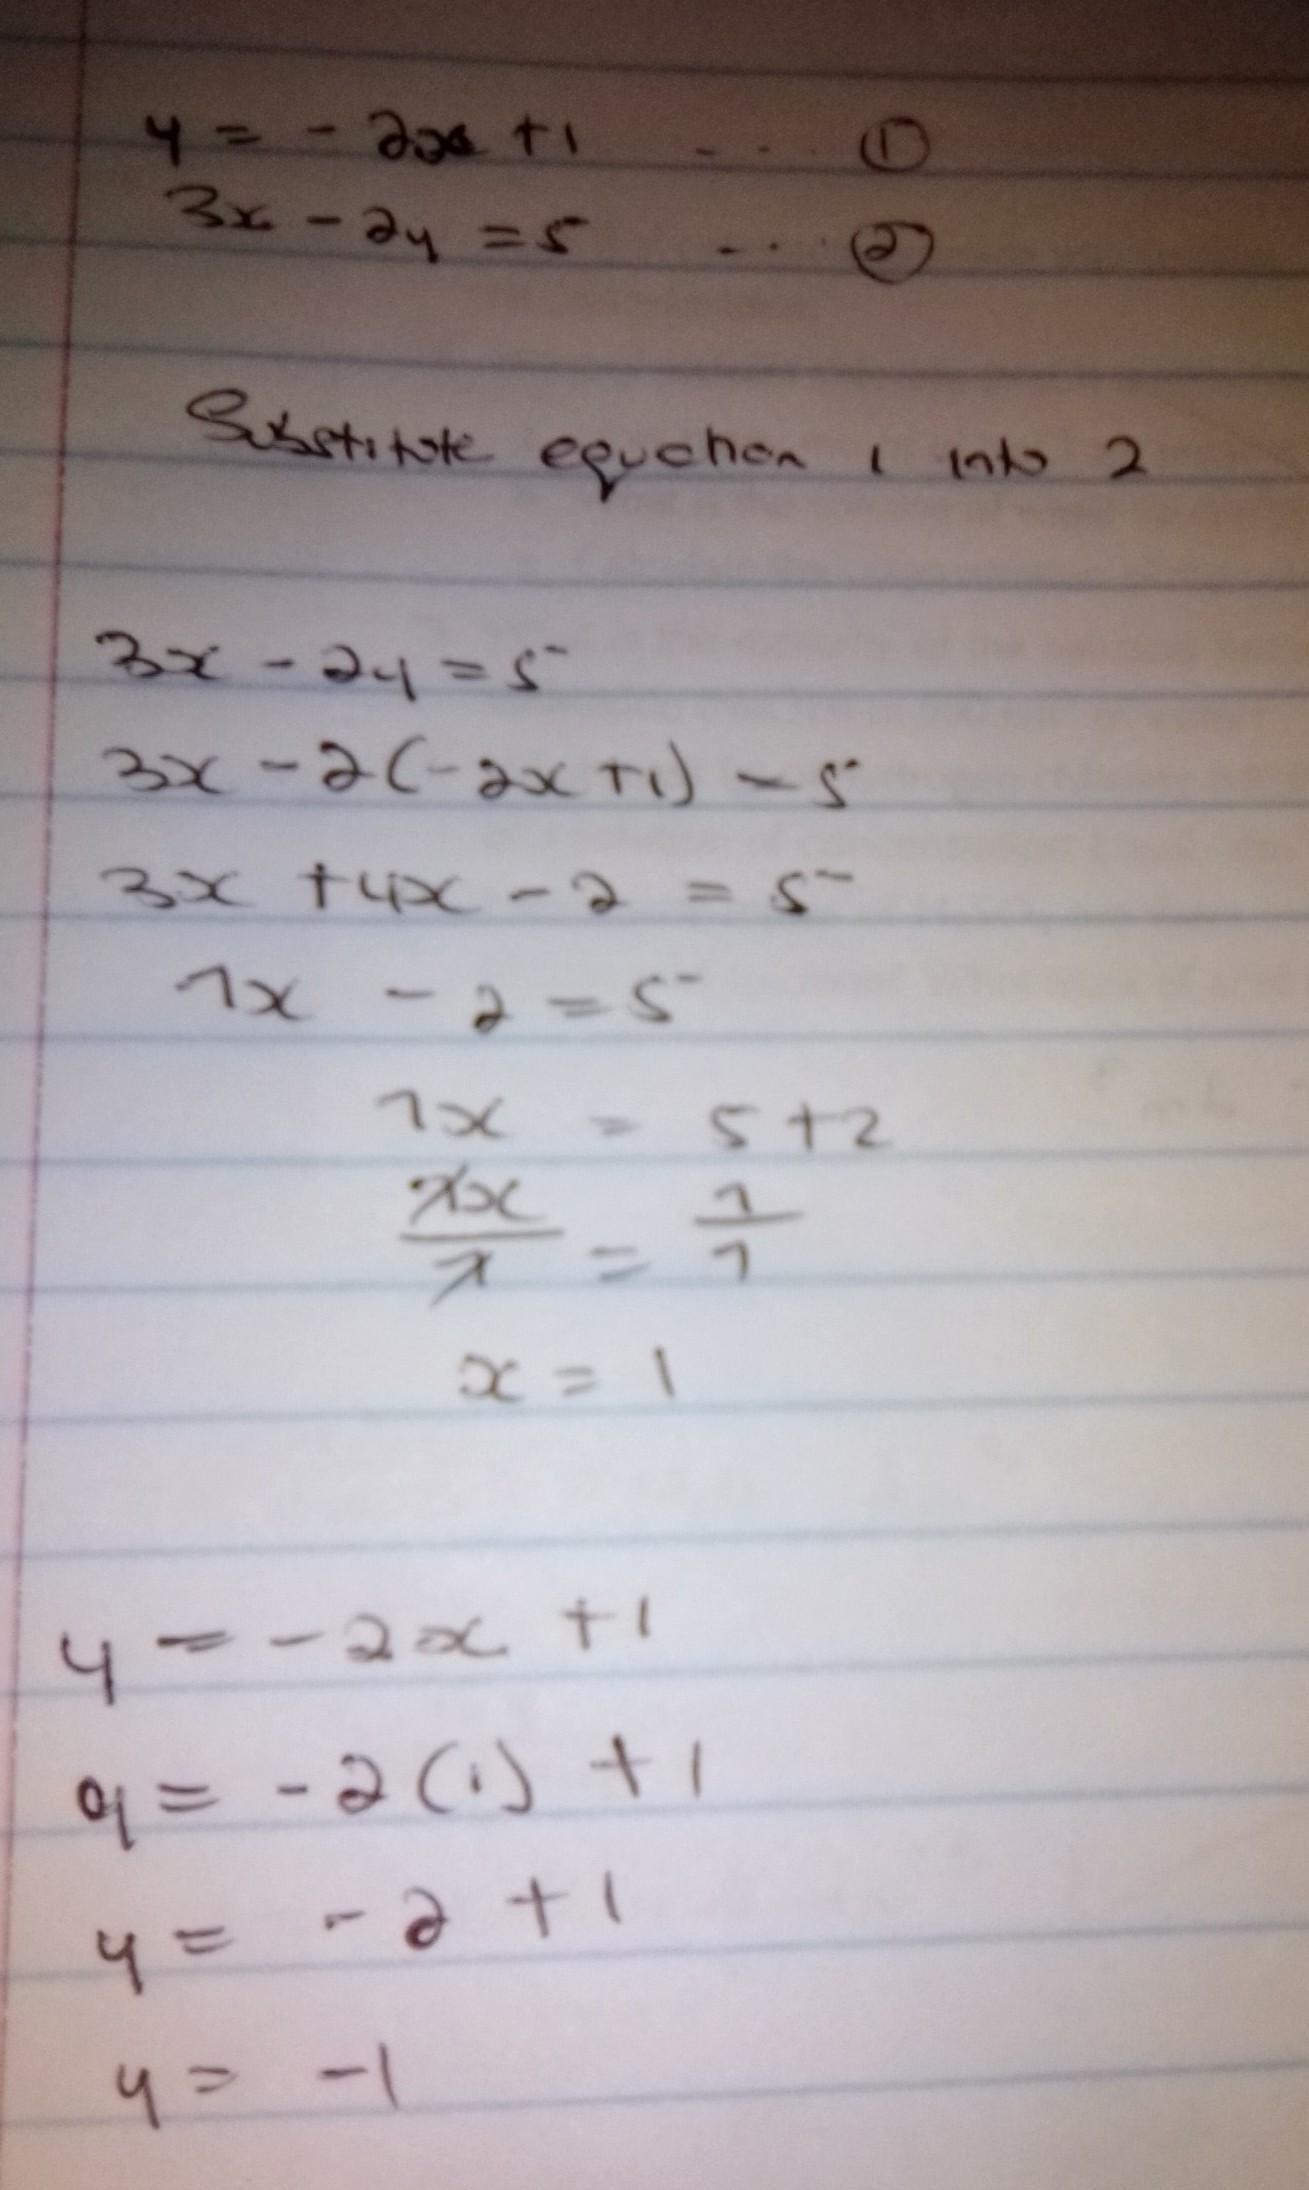 y = - 2x + 1 ... ①
3x - 2y = 5 ... ②
Substitute equation 1 into 2
3x - 2y = 5
3x - 2(-2x + 1) = 5
3x + 4x - 2 = 5
7x - 2 = 5
7x = 5 + 2
7x/7 = 7/7
x = 1
y = - 2x + 1
y = - 2(1) + 1
y = - 2 + 1
y = - 1